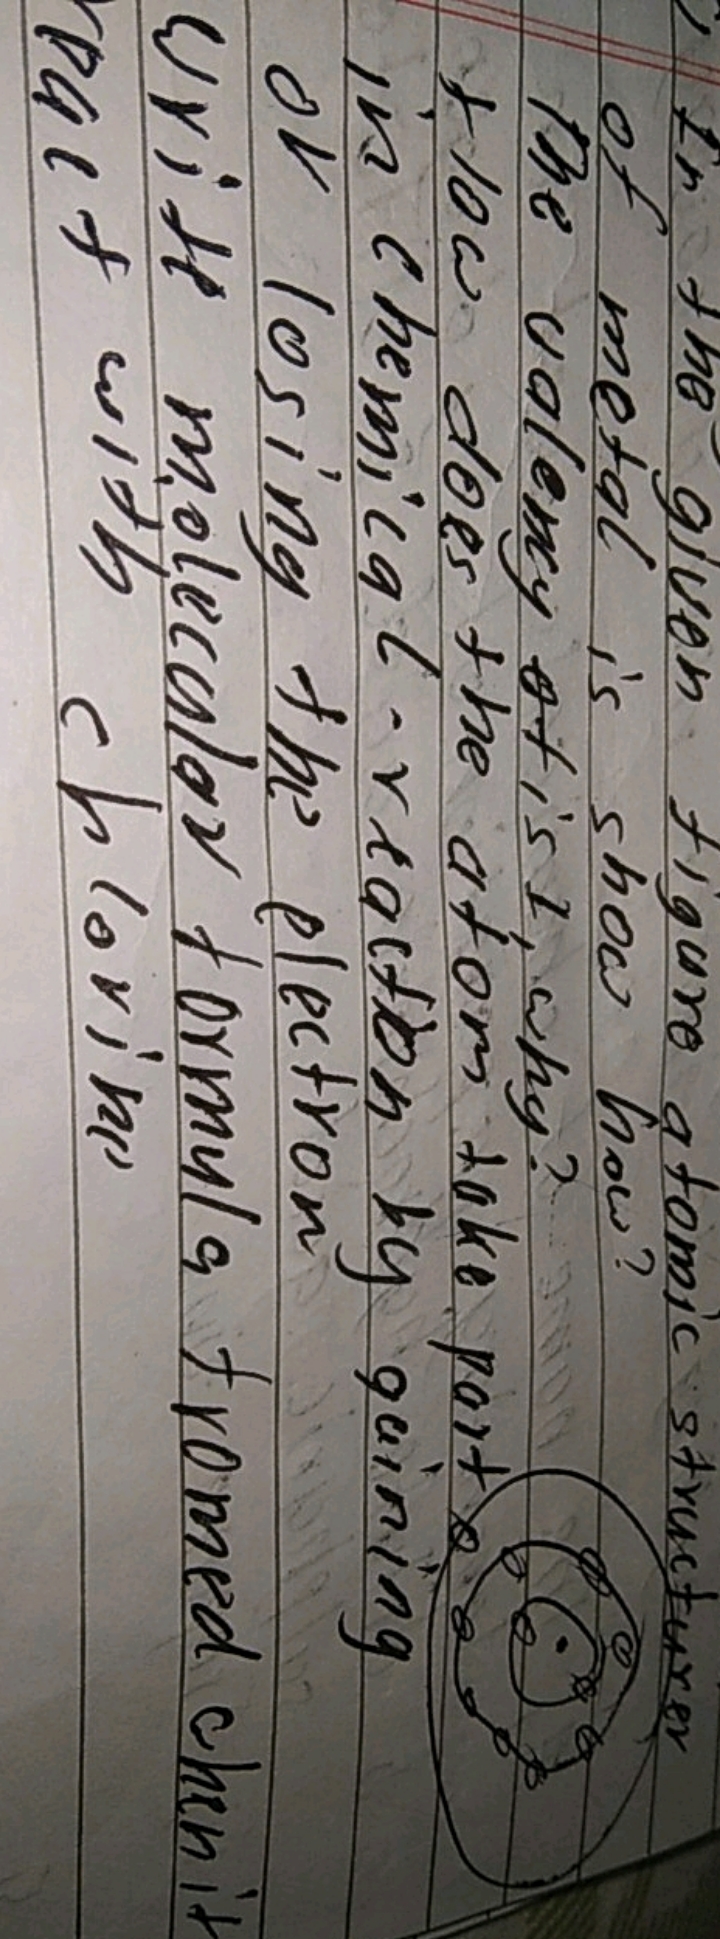 In the given figure atomic structurer
of metal is show how?
the valemy of is 1, why?
How does the atom take part
in chemical reaction by gaining
or losing the electron
write molecular formula fromed when it
react with chlorine